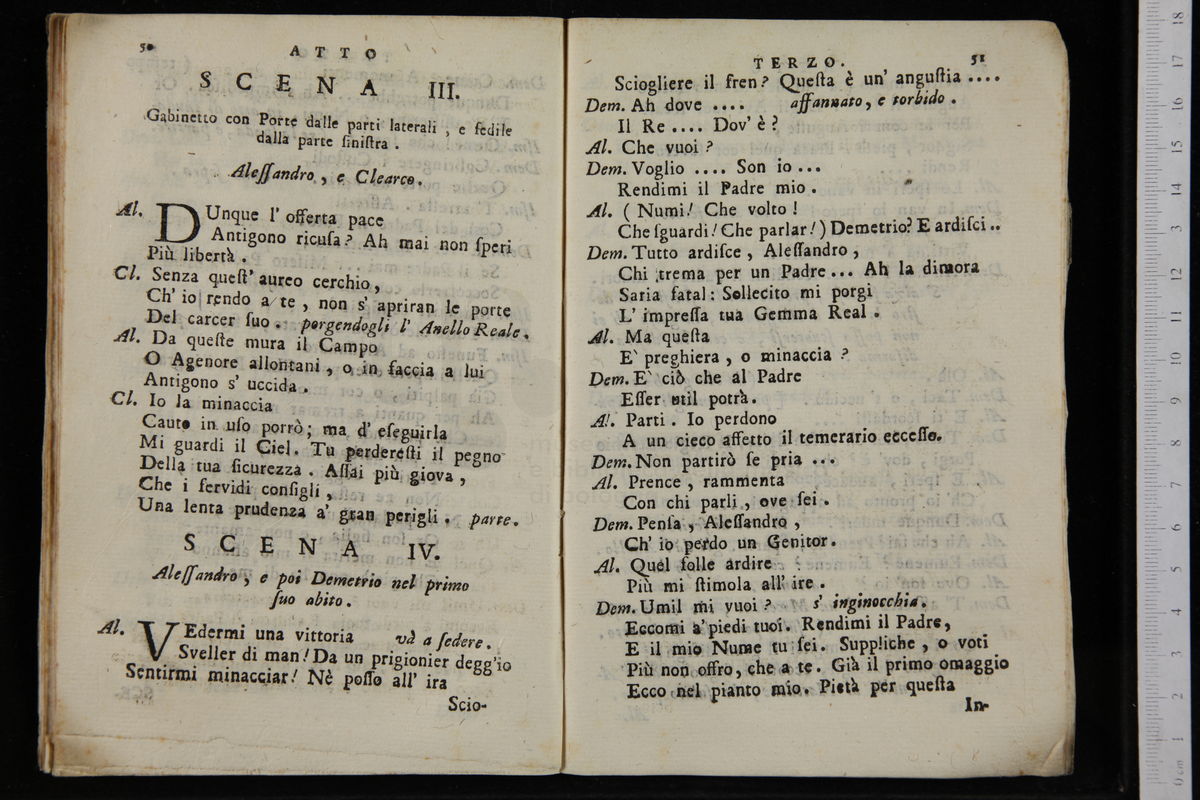 50
ATTO
SCENA III.
Gabinetto con Porte dalle parti laterali , e ſedile
dalla parte ſiniſtra .
Aleſſandro , e Clearco.
Al. DUnque l' offerta pace
Antigono ricuſa? Ah mai non ſperi
Più libertà .
Cl. Senza queſt' aureo cerchio,
Ch' io rendo a te , non s' apriran le porte
Del carcer ſuo . porgendogli l' Anello Reale.
Al. Da queſte mura il Campo
O Agenore allontani , o in faccia a lui
Antigono s' uccida .
Cl. Io la minaccia
Cauto in uſo porrò; ma d' eſeguirla
Mi guardi il Ciel. Tu perdereſti il pegno
Della tua ſicurezza . Aſſai più giova ,
Che i fervidi conſigli ,
Una lenta prudenza a' gran perigli . parte.
SCENA IV.
Aleſſandro , e poi Demetrio nel primo
ſuo abito .
Al. VEdermi una vittoria và a ſedere.
Sveller di man! Da un prigionier degg'io
Sentirmi minacciar! Nè poſſo all' ira
Scio-
TERZO. 51
Sciogliere il fren? Queſta è un' anguſtia ....
Dem. Ah dove .... affannato, e torbido .
Il Re .... Dov' è ?
Al. Che vuoi ?
Dem. Voglio .... Son io ...
Rendimi il Padre mio .
Al. ( Numi! Che volto !
Che ſguardi! Che parlar! ) Demetrio? E ardiſci ..
Dem. Tutto ardiſce , Aleſſandro ,
Chi trema per un Padre ... Ah la dimora
Saria fatal: Sollecito mi porgi
L' impreſſa tua Gemma Real .
Al. Ma queſta
E` preghiera , o minaccia ?
Dem. E` ciò che al Padre
Eſſer util potrà.
Al. Parti . Io perdono
A un cieco affetto il temerario ecceſſo.
Dem. Non partirò ſe pria ...
Al. Prence , rammenta
Con chi parli , ove ſei .
Dem. Penſa , Aleſſandro ,
Ch' io perdo un Genitor.
Al. Quel folle ardire
Più mi ſtimola all' ire .
Dem. Umil mi vuoi ? s' inginocchia.
Eccomi a' piedi tuoi. Rendimi il Padre,
E il mio Nume tu ſei. Suppliche , o voti
Più non offro, che a te . Già il primo omaggio
Ecco nel pianto mio. Pietà per queſta
In-